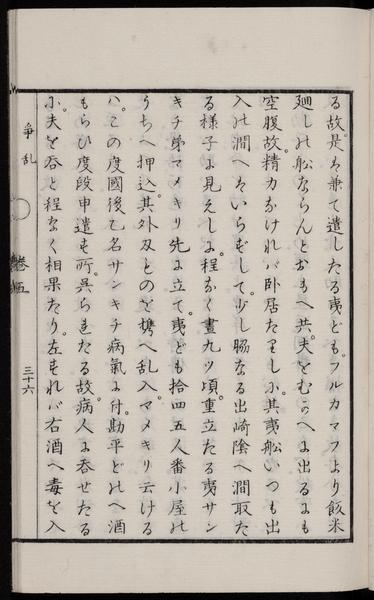 る故。是は兼て遣したる夷ども。フルカマフより飯米
廻しの舩ならんとおもへ共。夫をむかへに出るにも
空腹故。精力なければ卧居たりしに。其夷舩いつも出
入の澗へはいらずして。少し脇なる出崎陰へ澗取た
る様子に見えしに。程なく晝九ツ頃。重立たる夷サン
キチ弟マメキリ先に立て。夷ども拾四五人番小屋の
うちへ押込。其外刄ものを携へ乱入。マメキリ云ける
ハ。この度國後乙名サンキチ病氣に付。勘平どのへ酒
もらひ度段申遣す所。呉られたる故。病人に呑せたる
に。夫を呑と程なく相果たり。左すれバ右酒へ毒を入
爭乱
巻五
三十六